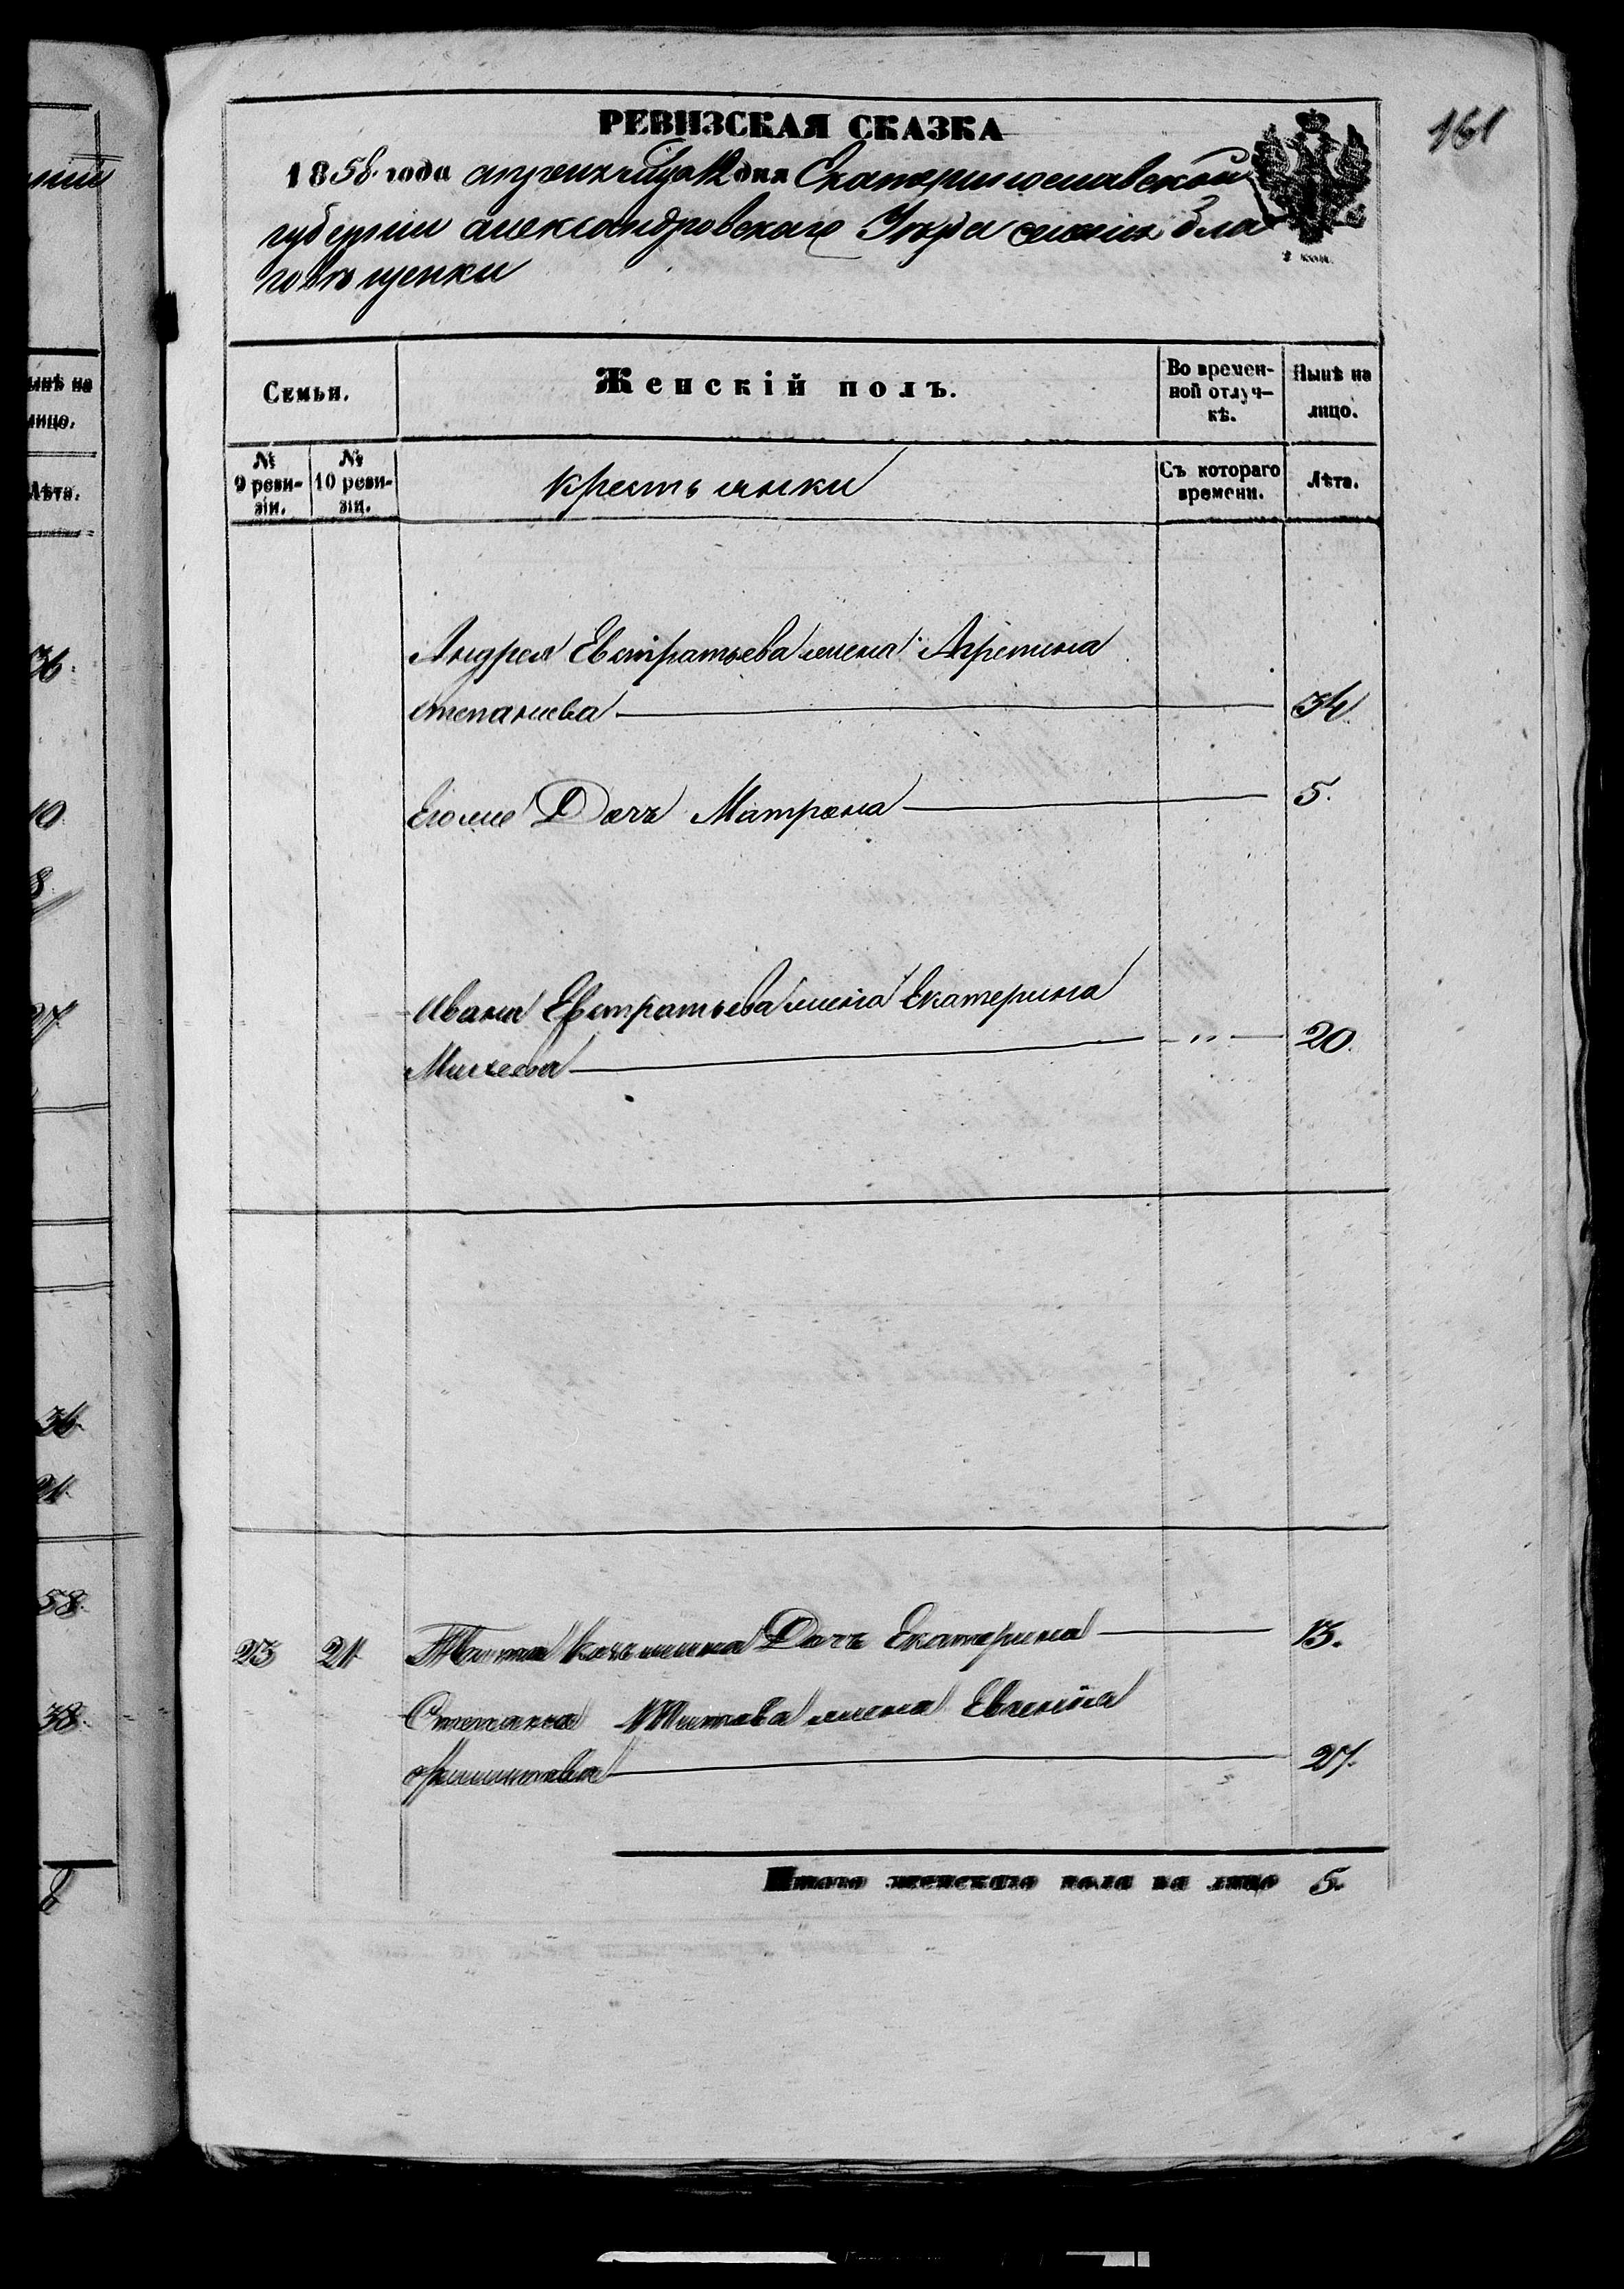 161
РЕВИЗСКАЯ СКАЗКА
1858 года апреля 12 дня Екатеринославской
губернии александровскаго Уезда селенія Бла
говѣщенки
2 коп.
Семьи.
Женскій полъ.
Во времен-
ной отлуч-
кѣ.
Нынѣ на
лицо.
№
9 реви-
зіи.
№
10 реви-
зіи.
крестьянки
Съ котораго
времени.
Лѣта.
Андрея Евстратьева жена Агрепина
степанова 34
Егоже Дочь Матрона 5.
Ивана Евстратьева жена Екатерина
Михеева " 20.
23 21 Тита Дочь Екатерина 13.
Степана Титова жена Евгенія
27.
Итого женскаго пола на лицо 5.
ынѣ на
лицо.
Лѣта.
36.
10
8
27
36
21
58.
38.
8